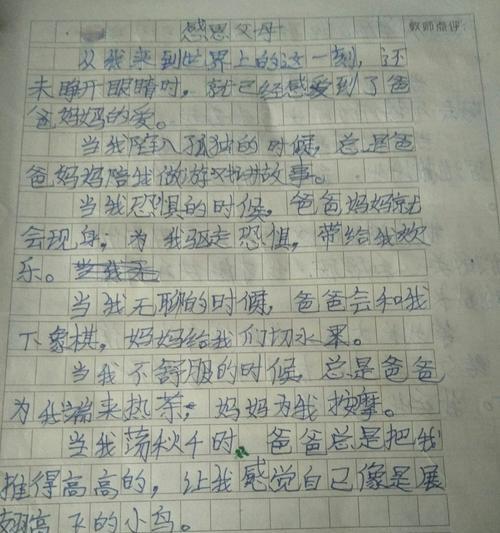 感恩父母
教师点评:
从我来到世界上的这一刻，还
未睁开眼睛时，就已经感爱到了爸
爸妈妈的爱。
当我陷入孤独的时候，总是爸
爸妈妈陪我做游戏讲故事。
当我恐惧的时候，爸爸妈妈就
会现身；为我驱走恐惧，带给我欢
乐。
当我无聊的时候，爸爸会和我
下象棋，妈妈给我们切水果。
当我不舒服的时候，总是爸爸
为我端来热茶；妈妈为我按摩。
当我荡秋千时，爸爸总是把我
推得高高的，让我感觉自己像是展
翅高飞的小鸟。